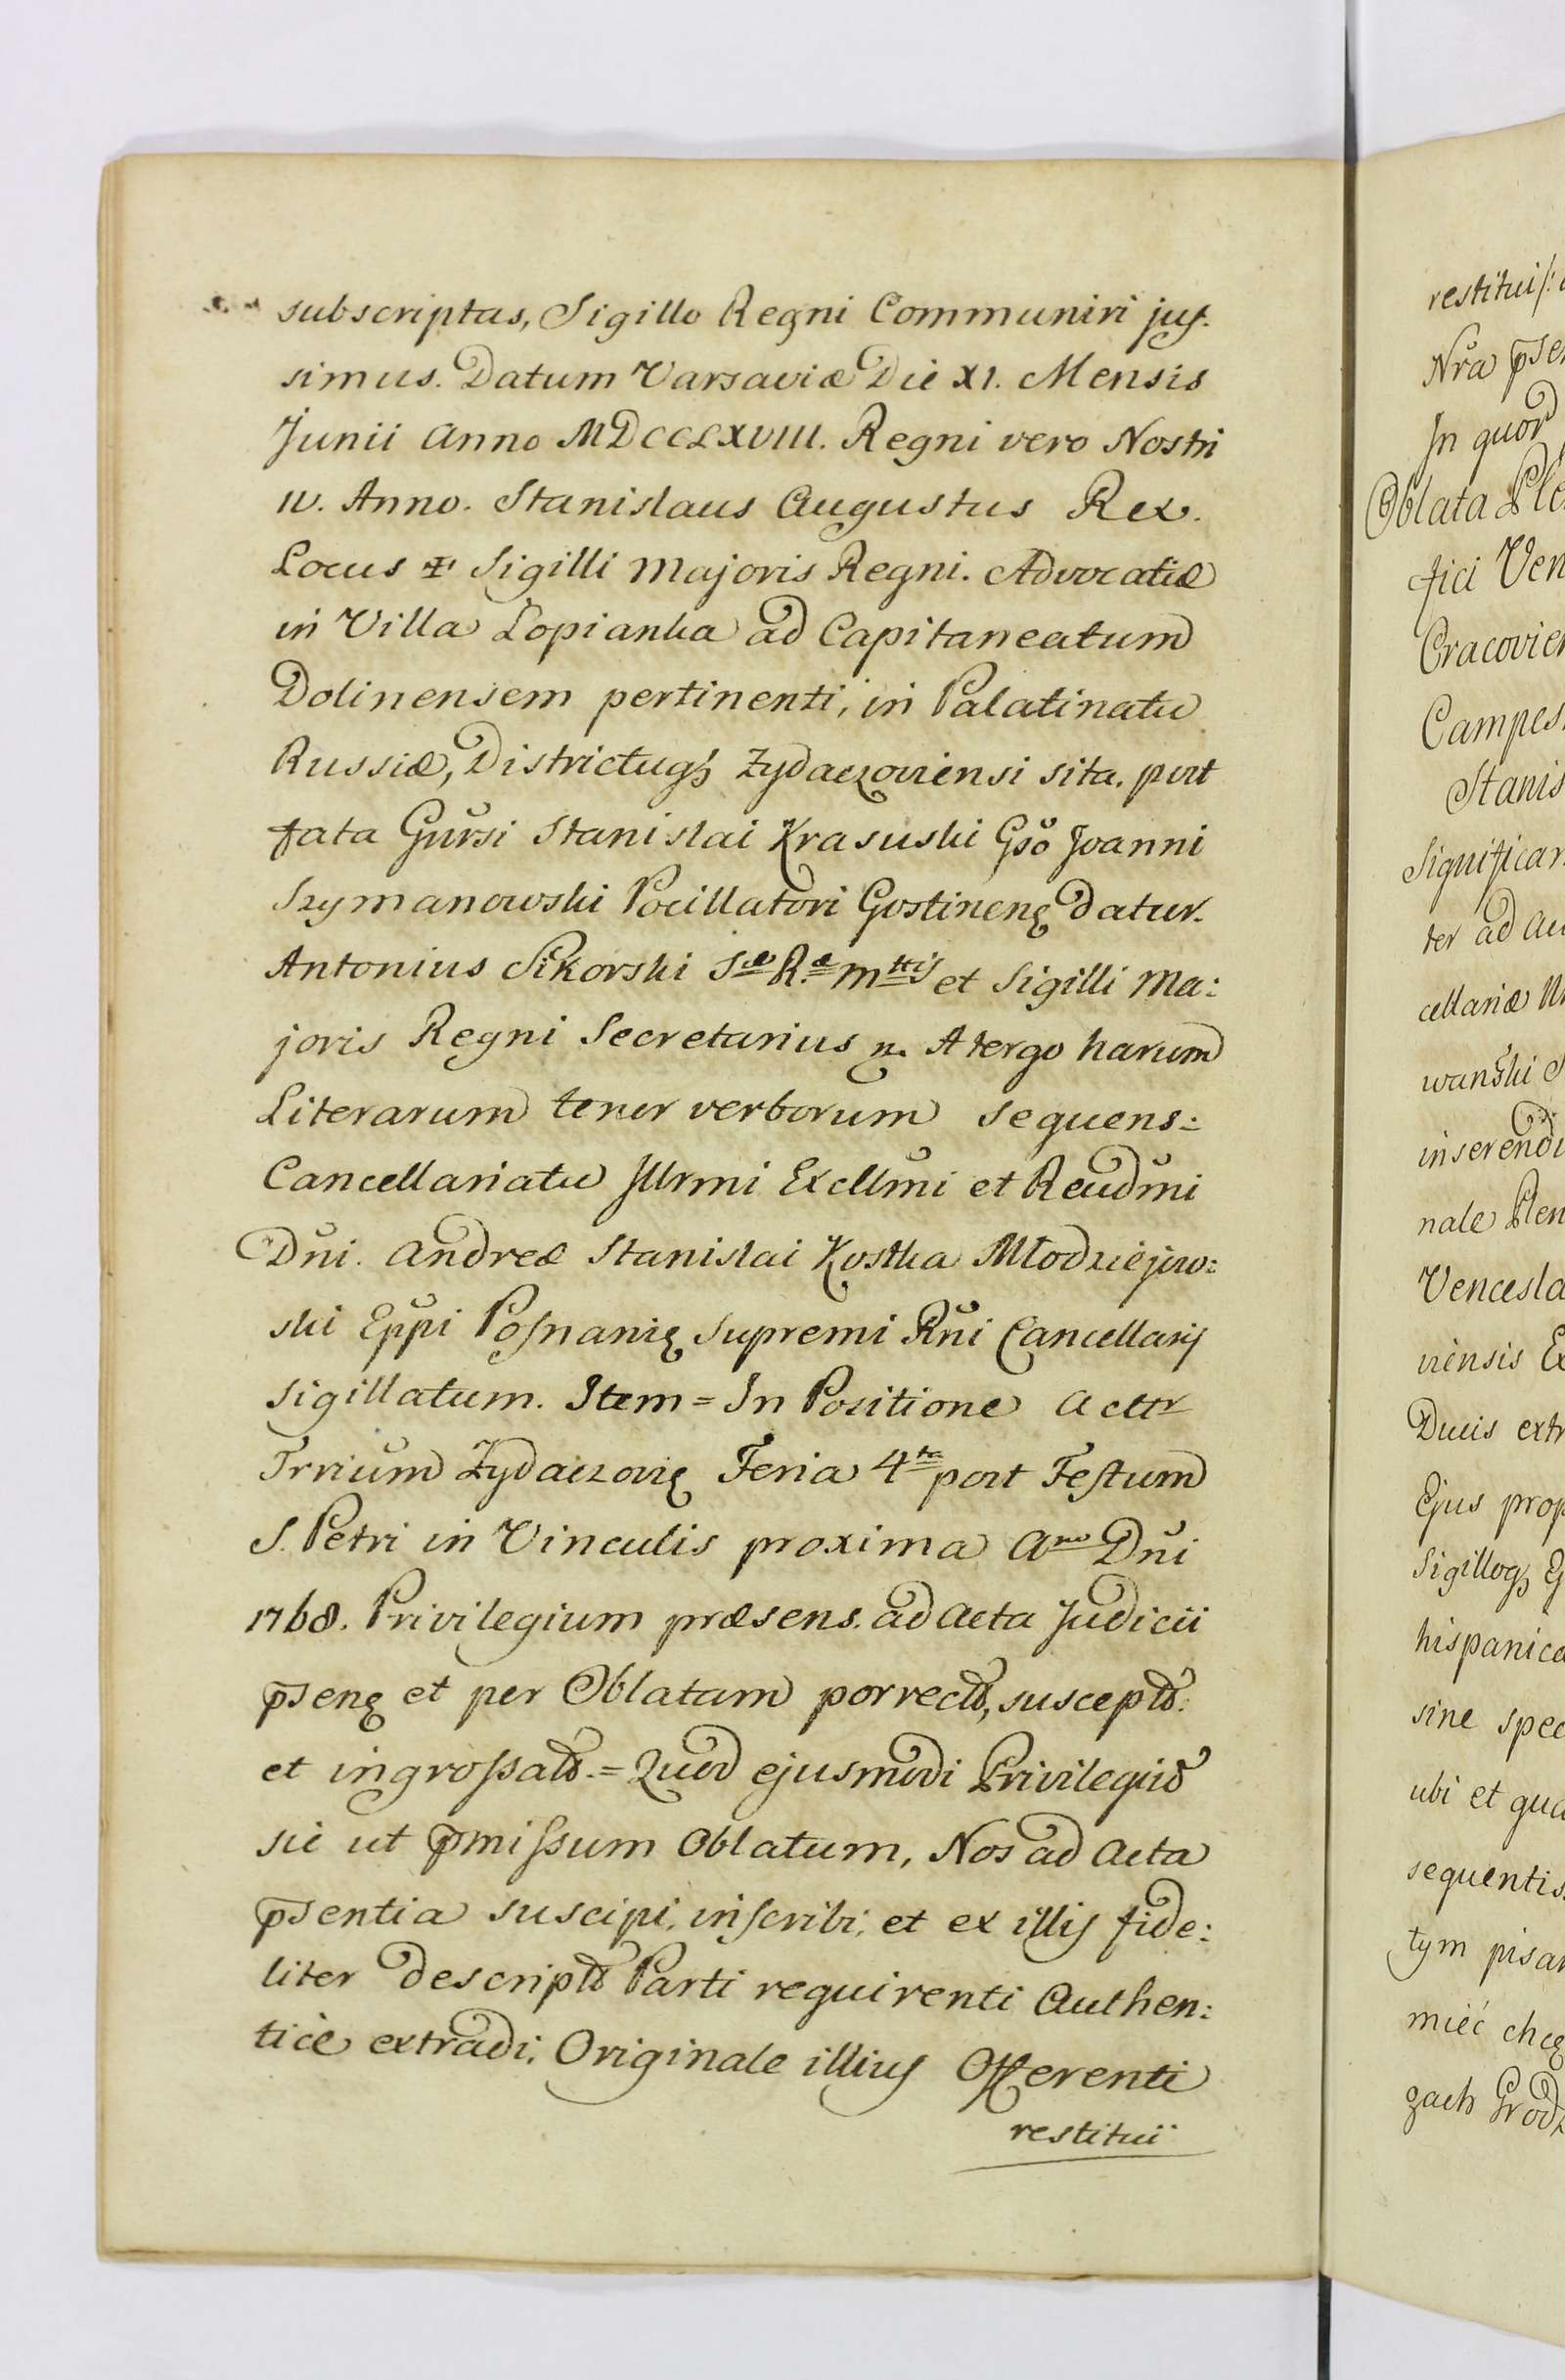 subscriptas, Sigillo Regni Communiri jus.
simus. Datum Varsaviæ Die XI. Mensis
Junii Anno MDCCLXVIII. Regni vero Nostri
IV. Anno. Stanislaus Augustus Rex.
Locus ✠ Sigilli Majoris Regni. Advocatiæ
in Villa Lopianka ad Capitaneatum
Dolinensem pertinenti, in Palatinatu
Russiæ, Districtuqꝫ Zydaczoviensi sita, post
fata Gnrsi Stanislai Krasuski Gso Joanni
Szymanowski Pocillatori Gostinenę datur.
Antonius Sikorski Sæ Ræ Mttis et Sigilli Ma:
joris Regni Secretarius m. A tergo harum
Literarum tenor verborum sequens:
Cancellariatu Illrmi Excllmi et Reudmi
Dni. Andreæ Stanislai Kostka Młodziejow:
ski Eppi Posnanię Supremi Rni Cancellarij
Sigillatum. Item = In Positione Acttr
Trrium Zydaczovię Feria 4ta post Festum
S. Petri in Vinculis proxima Ano Dni
1768. Privilegium præsens. ad Acta Judicii
p̄senę et per Oblatam porrectũ, susceptũ.
et ingrossatũ. = Quod ejusmodi Privilegiũ
sic ut p̄missum Oblatum, Nos ad Acta
p̄sentia suscipi, inscribi, et ex illis fide:
liter descriptũ Parti requirenti Authen:
ticè extradi, Originale illius Offerenti
restitui
restitui/:
Nra p̄se
In quor
Oblata Ple
fici Ven
Cracovie
Campes
Stanis
Significan
ter ad Ac
cellariæ
wanski
inserend
nale Plen
Vencesla
viensis Ex
Ducis extr
Ejus prop
Sigilloqꝫ Ej
hispanica
sine spec
ubi et qua
sequentis
tym pisan
mieć chcę
gach Grodz